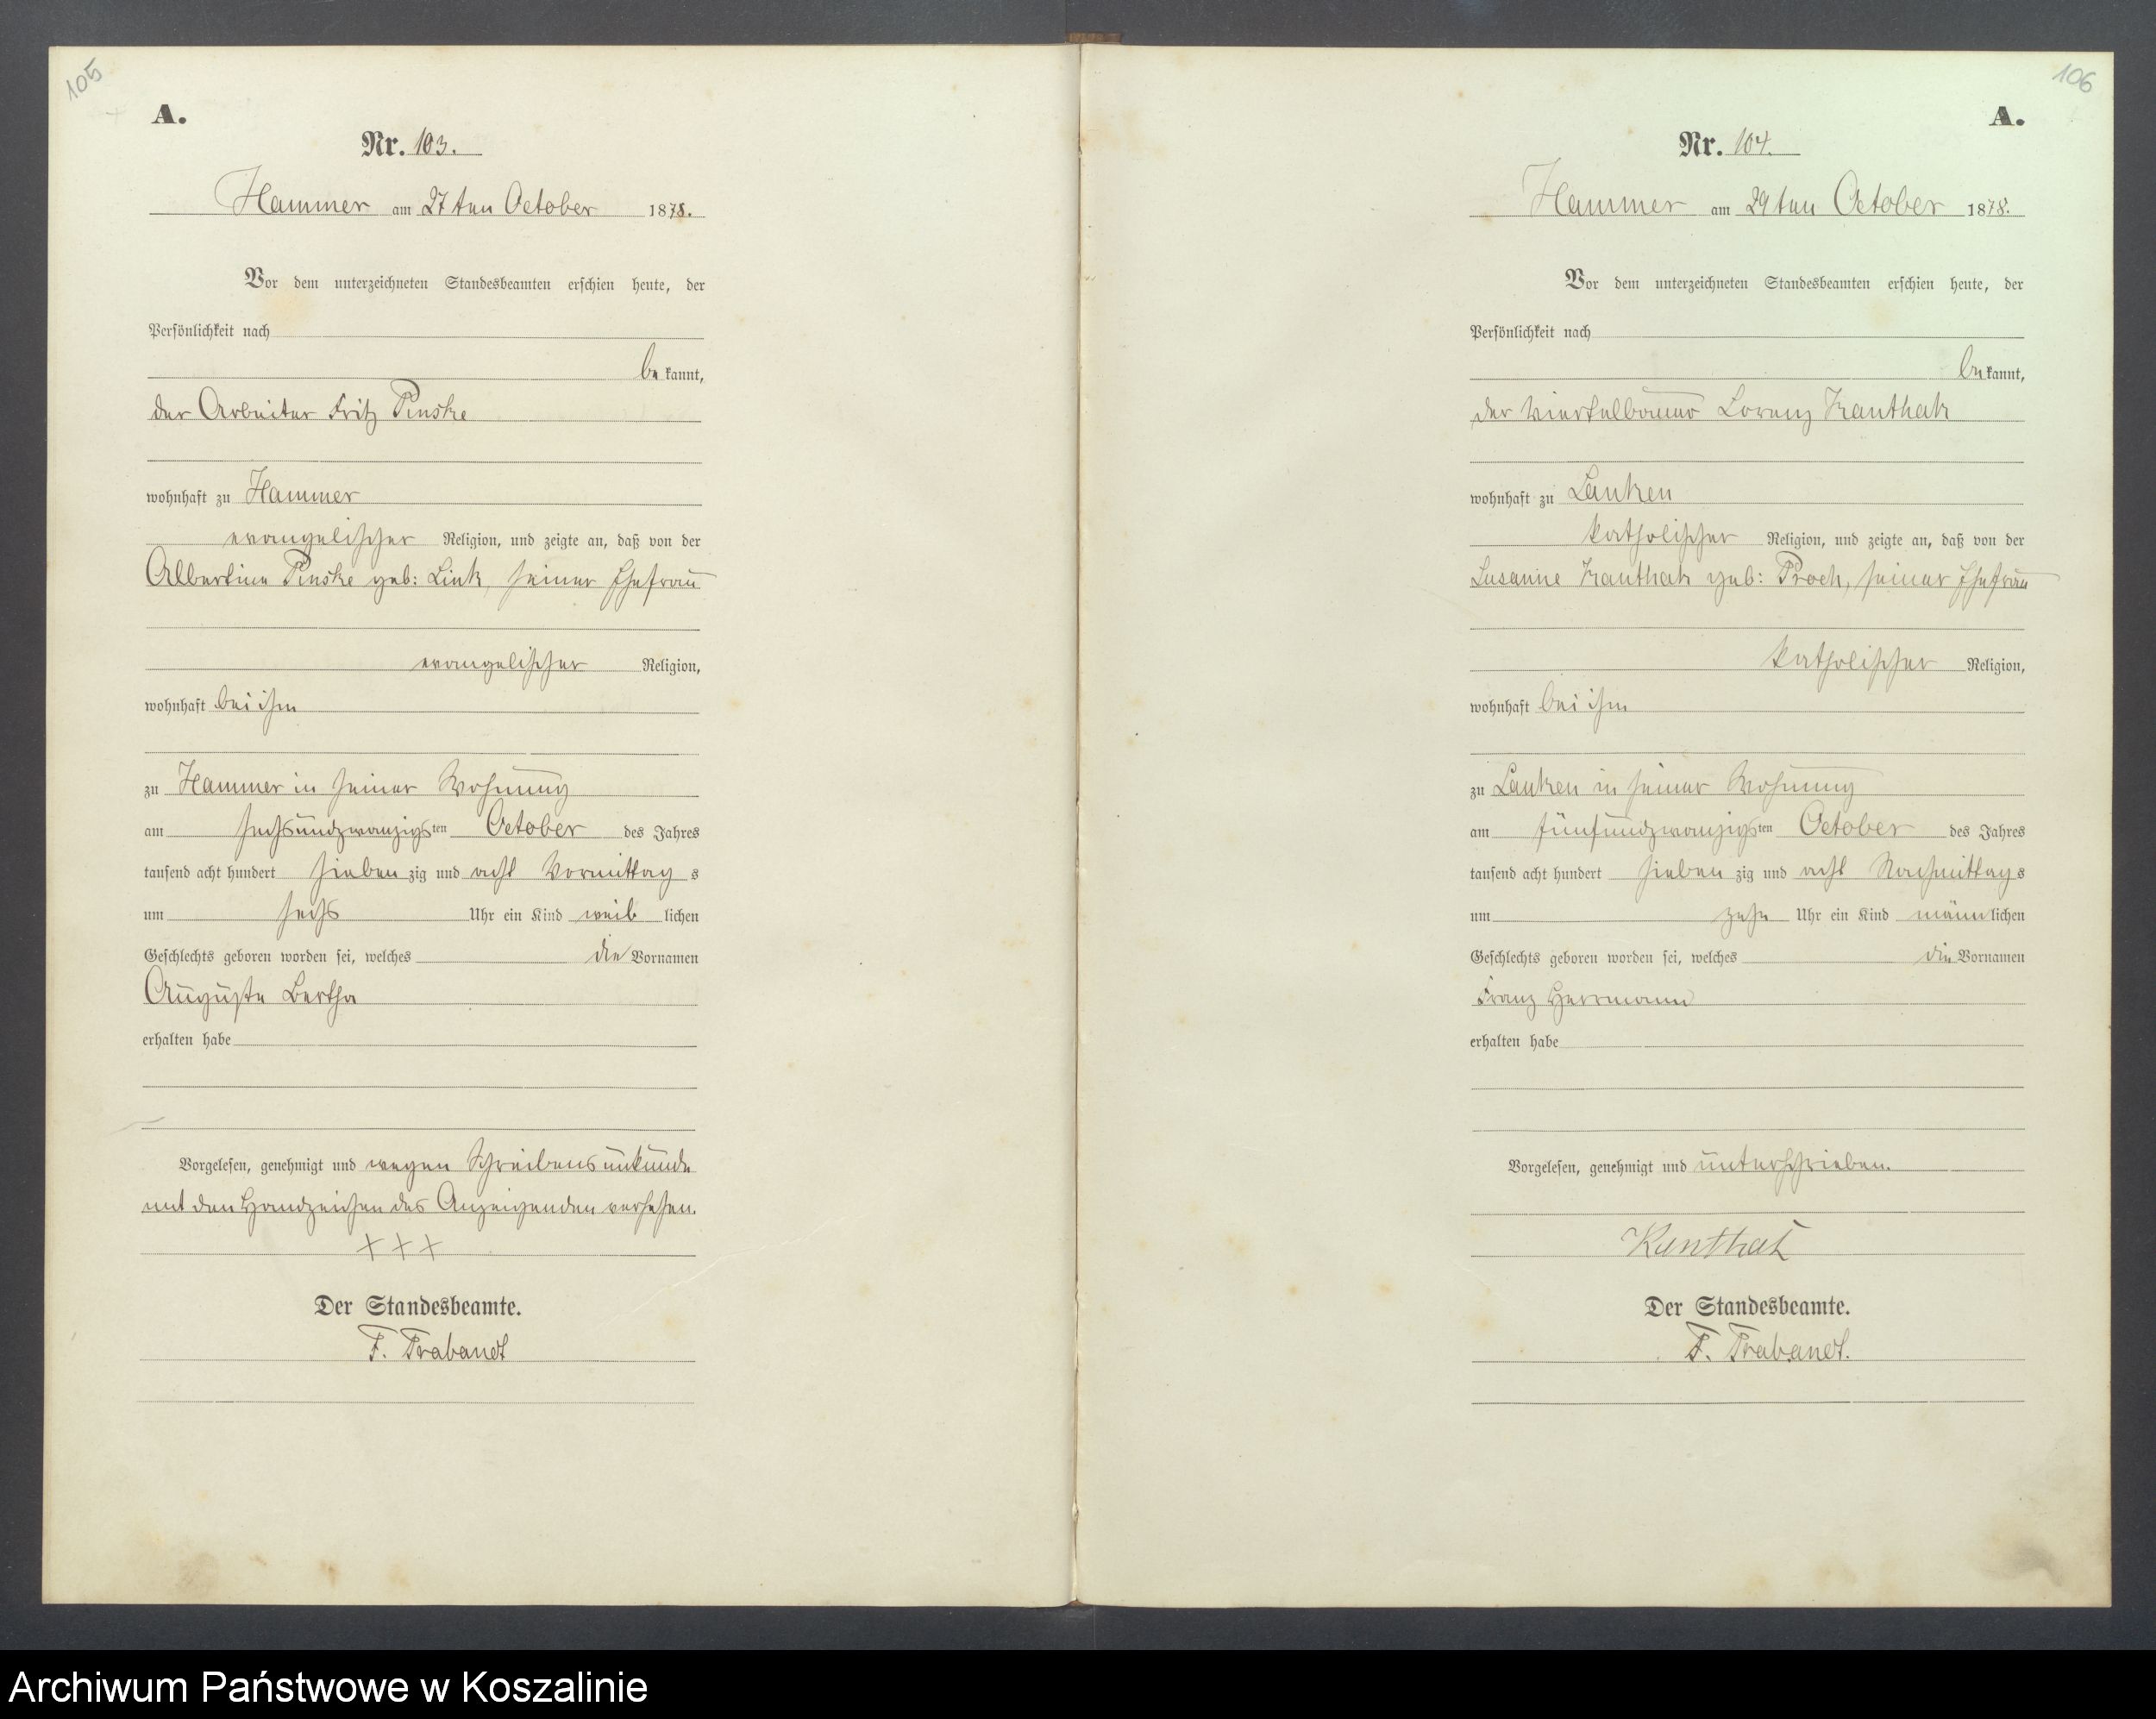 105
A.
Nr. 103.
Hammer am 27ten October 1878.
Vor dem unterzeichneten Standesbeamten erschien heute, der
Persönlichkeit nach
be kannt,
der Arbeiter Fritz Pinske
wohnhaft zu Hammer
evangelischer Religion, und zeigte an, daß von der
Albertine Pinske geb: Link, seiner Ehefrau
evangelischer Religion,
wohnhaft bei ihm
zu Hammer in seiner Wohnung
am sechsundzwanzigsten October des Jahres
tausend acht hundert sieben zig und acht Vormittag s
um sechs Uhr ein Kind weib lichen
Geschlechts geboren worden sei, welches die Vornamen
Auguste Bertha
erhalten habe
Vorgelesen, genehmigt und wegen Schreibensunkunde
mit den Handzeichen des Anzeigenden versehen.
+++
Der Standesbeamte.
F. Trabandt
106
A.
Nr. 104.
Hammer am 29ten October 1878.
Vor dem unterzeichneten Standesbeamten erschien heute, der
Persönlichkeit nach
be kannt,
der Viertelbauer Lorenz Kanthak
wohnhaft zu Lanken
katholischer Religion, und zeigte an, daß von der
Susanne Kanthak geb: Proch, seiner Ehefrau
katholischer Religion,
wohnhaft bei ihm
zu Lanken in seiner Wohnung
am fünfundzwanzigsten October des Jahres
tausend acht hundert sieben zig und acht Nachmittag s
um zehn Uhr ein Kind männ lichen
Geschlechts geboren worden sei, welches die Vornamen
Franz Herrmann
erhalten habe
Vorgelesen, genehmigt und unterschrieben.
Kanthak
Der Standesbeamte.
F. Trabandt.
Archiwum Państwowe w Koszalinie